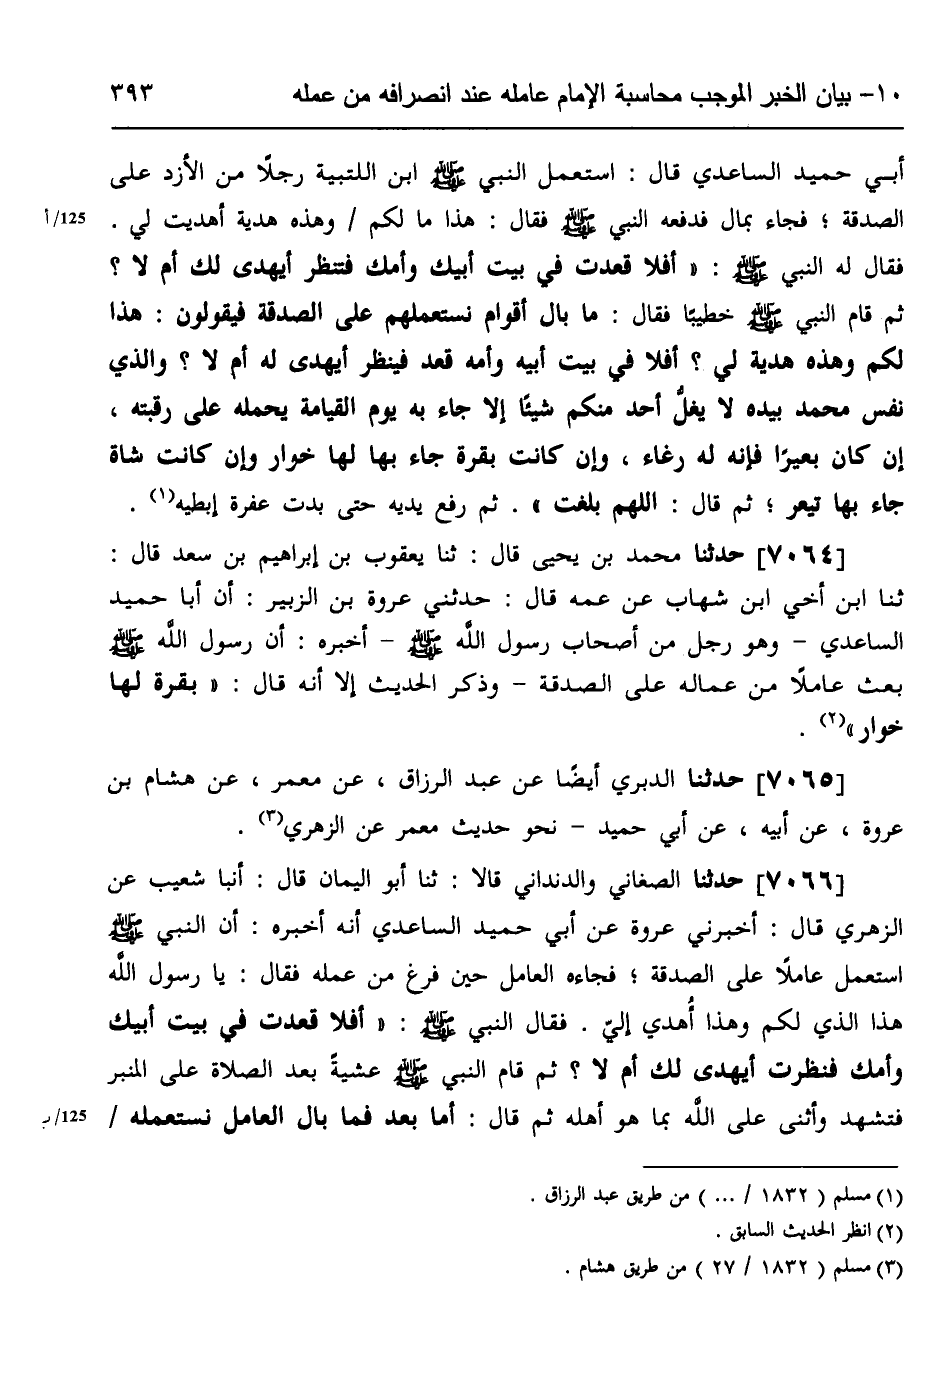 ١٠- بيان الخبر الموجب محاسبة الإمام عامله عند انصرافه من عمله ٣٩٣
أبي حميد الساعدي قال : استعمل النبي ﷺ ابن اللتبية رجلًا من الأزد على
الصدقة ؛ فجاء بمال فدفعه النبي ﷺ فقال : هذا ما لكم / وهذه هدية أهديت لي . 125/أ
فقال له النبي ﷺ : « أفلا قعدت في بيت أبيك وأمك فتنظر أيهدى لك أم لا ؟
ثم قام النبي ﷺ خطيبًا فقال : ما بال أقوام نستعملهم على الصدقة فيقولون : هذا
لكم وهذه هدية لي ؟ أفلا في بيت أبيه وأمه قعد فينظر أيهدى له أم لا ؟ والذي
نفس محمد بيده لا يغلُّ أحد منكم شيئًا إلا جاء به يوم القيامة يحمله على رقبته ،
إن كان بعيرًا فإنه له رغاء ، وإن كانت بقرة جاء بها لها خوار وإن كانت شاة
جاء بها تيعر ؛ ثم قال : اللهم بلغت » . ثم رفع يديه حتى بدت عفرة إبطيه(١) .
[٧٠٦٤] حدثنا محمد بن يحيى قال : ثنا يعقوب بن إبراهيم بن سعد قال :
ثنا ابن أخي ابن شهاب عن عمه قال : حدثني عروة بن الزبير : أن أبا حميد
الساعدي – وهو رجل من أصحاب رسول اللَّه ﷺ – أخبره : أن رسول اللَّه ﷺ
بعث عاملًا من عماله على الصدقة – وذكر الحديث إلا أنه قال : « بقرة لها
خوار »(٢) .
[٧٠٦٥] حدثنا الدبري أيضًا عن عبد الرزاق ، عن معمر ، عن هشام بن
عروة ، عن أبيه ، عن أبي حميد – نحو حديث معمر عن الزهري(٣) .
[٧٠٦٦] حدثنا الصغاني والدنداني قالا : ثنا أبو اليمان قال : أنبا شعيب عن
الزهري قال : أخبرني عروة عن أبي حميد الساعدي أنه أخبره : أن النبي ﷺ
استعمل عاملًا على الصدقة ؛ فجاءه العامل حين فرغ من عمله فقال : يا رسول اللَّه
هذا الذي لكم وهذا أُهدي إليّ . فقال النبي ﷺ : « أفلا قعدت في بيت أبيك
وأمك فنظرت أيهدى لك أم لا ؟ ثم قام النبي ﷺ عشيةً بعد الصلاة على المنبر
فتشهد وأثنى على اللَّه بما هو أهله ثم قال : أما بعد فما بال العامل نستعمله / 125/ب
(١) مسلم ( ١٨٣٢ / ... ) من طريق عبد الرزاق .
(٢) انظر الحديث السابق .
(٣) مسلم ( ١٨٣٢ / ٢٧ ) من طريق هشام .